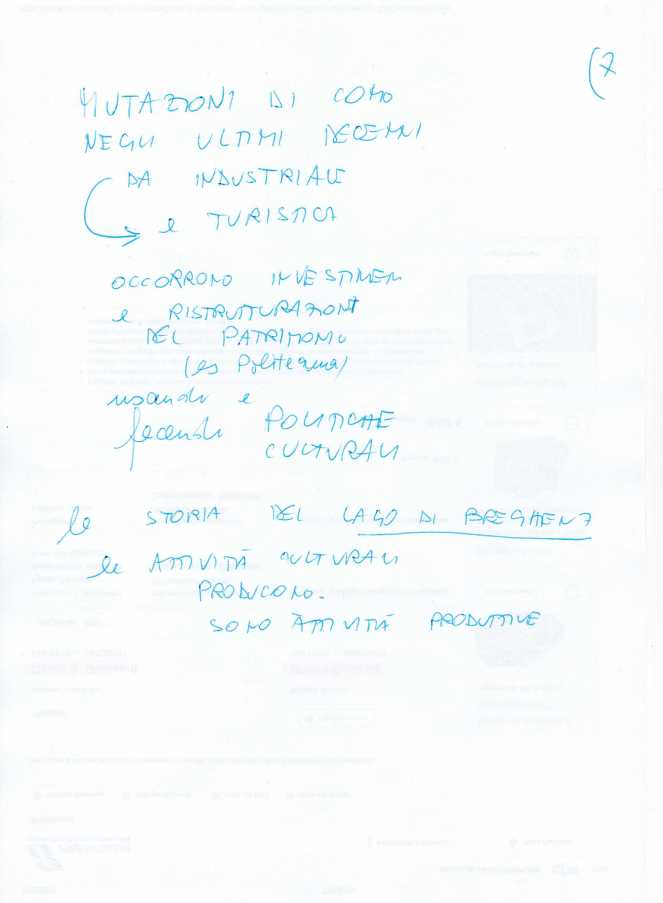 (7
MUTAZIONI DI COMO
NEGLI ULTIMI DECENNI
DA INDUSTRIALE
e TURISTICA
OCCORRONO INVESTIMEN
e RISTRUTTURAZIONI
DEL PATRIMONIO
(es Politeama)
usando e
facendo POLITICHE
CULTURALI
la STORIA DEL LAGO DI BREGHENZ
le ATTIVITÀ CULTURALI
PRODUCONO.
SONO ATTIVITÀ PRODUTTIVE